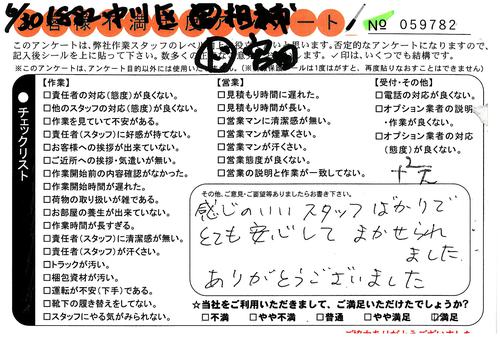 客様不満足度アンケート
6/30
中川区
№ 059782
このアンケートは、弊社作業スタッフのレベル
思います。否定的なアンケートになりますので、
記入後シールを上に貼って下さい。数多くの
ます。✓印は、いくつでも結構です。
※このアンケートは、アンケート目的以外には使用いた
シールは1度はがすと、再度貼りなおすことはできません)
●チェックリスト
【作業】
□責任者の対応(態度)が良くない。
□他のスタッフの対応(態度)が良くない。
□作業を見ていて不安がある。
□責任者(スタッフ)に好感が持てない。
□お客様への挨拶が出来ていない。
□ご近所への挨拶・気遣いが無い。
□作業開始前の内容確認がなかった。
□作業開始時間が遅れた。
□荷物の取り扱いが雑である。
□お部屋の養生が出来ていない。
□作業時間が長すぎる。
□責任者(スタッフ)に清潔感が無い。
□責任者(スタッフ)が汗くさい。
□トラックが汚い。
□梱包資材が汚い。
□運転が不安(下手)である。
□靴下の履き替えをしてない。
□スタッフにやる気がみられない。
【営業】
□見積もり時間に遅れた。
□見積もり時間が長い。
□営業マンに清潔感が無い。
□営業マンが煙草くさい。
□営業マンが汗くさい。
□営業態度が良くない。
□営業の説明と作業が一致してない。
【受付・その他】
□電話の対応が良くない。
□オプション業者の説明
・作業が良くない。
□オプション業者の対応
(態度)が良くない。
その他、ご意見・ご要望等ありましたらお書き下さい。
感じのいいスタッフばかりで
とても安心してまかせられ
ました
ありがとうございました
☆当社をご利用いただきまして、ご満足いただけたでしょうか?
□不満 □やや不満 □普通 □やや満足 ☑満足